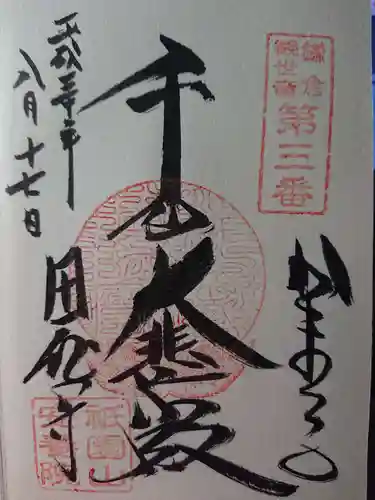 鎌倉
観世音
第三番
かまくら
千手大悲殿
平成三十年
八月十七日
田代寺
祇園山
安養院